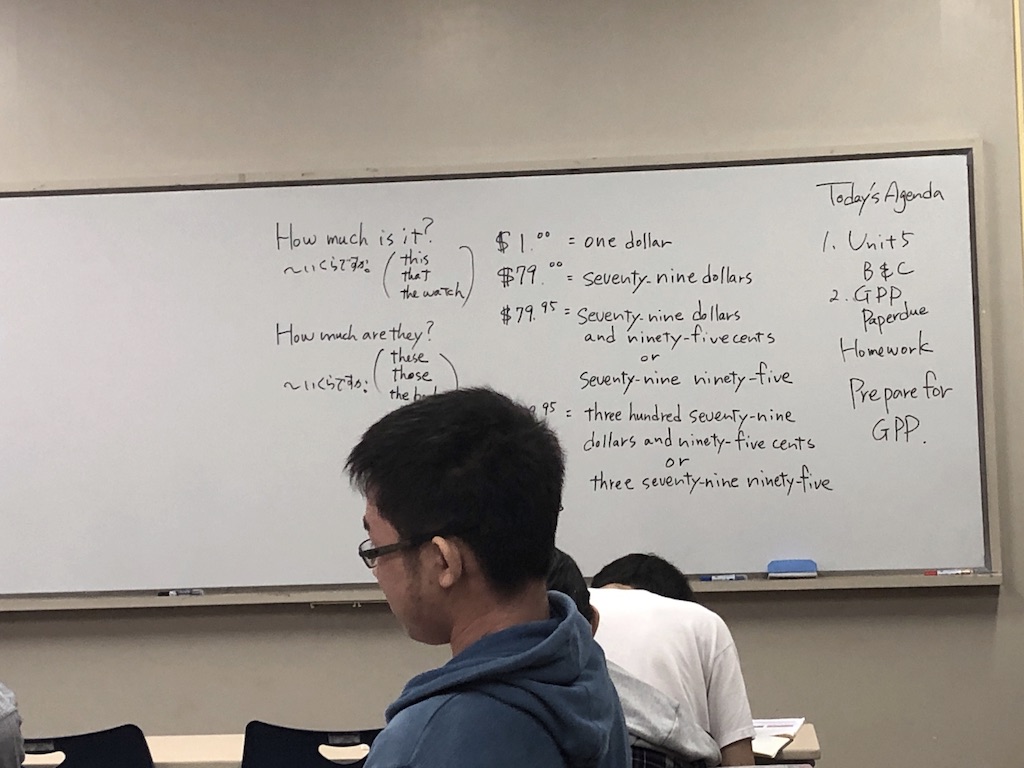 How much is it?
〜いくらですか?
this
that
the watch
How much are they?
〜いくらですか?
these
those
the
$1.00 = one dollar
$79.00 = seventy-nine dollars
$79.95 = Seventy-nine dollars
and ninety-five cents
or
seventy-nine ninety-five
.95 = three hundred seventy-nine
dollars and ninety-five cents
or
three seventy-nine ninety-five
Today's Agenda
1. Unit 5
B & C
2. GPP
Paperdue
Homework
Prepare for
GPP.